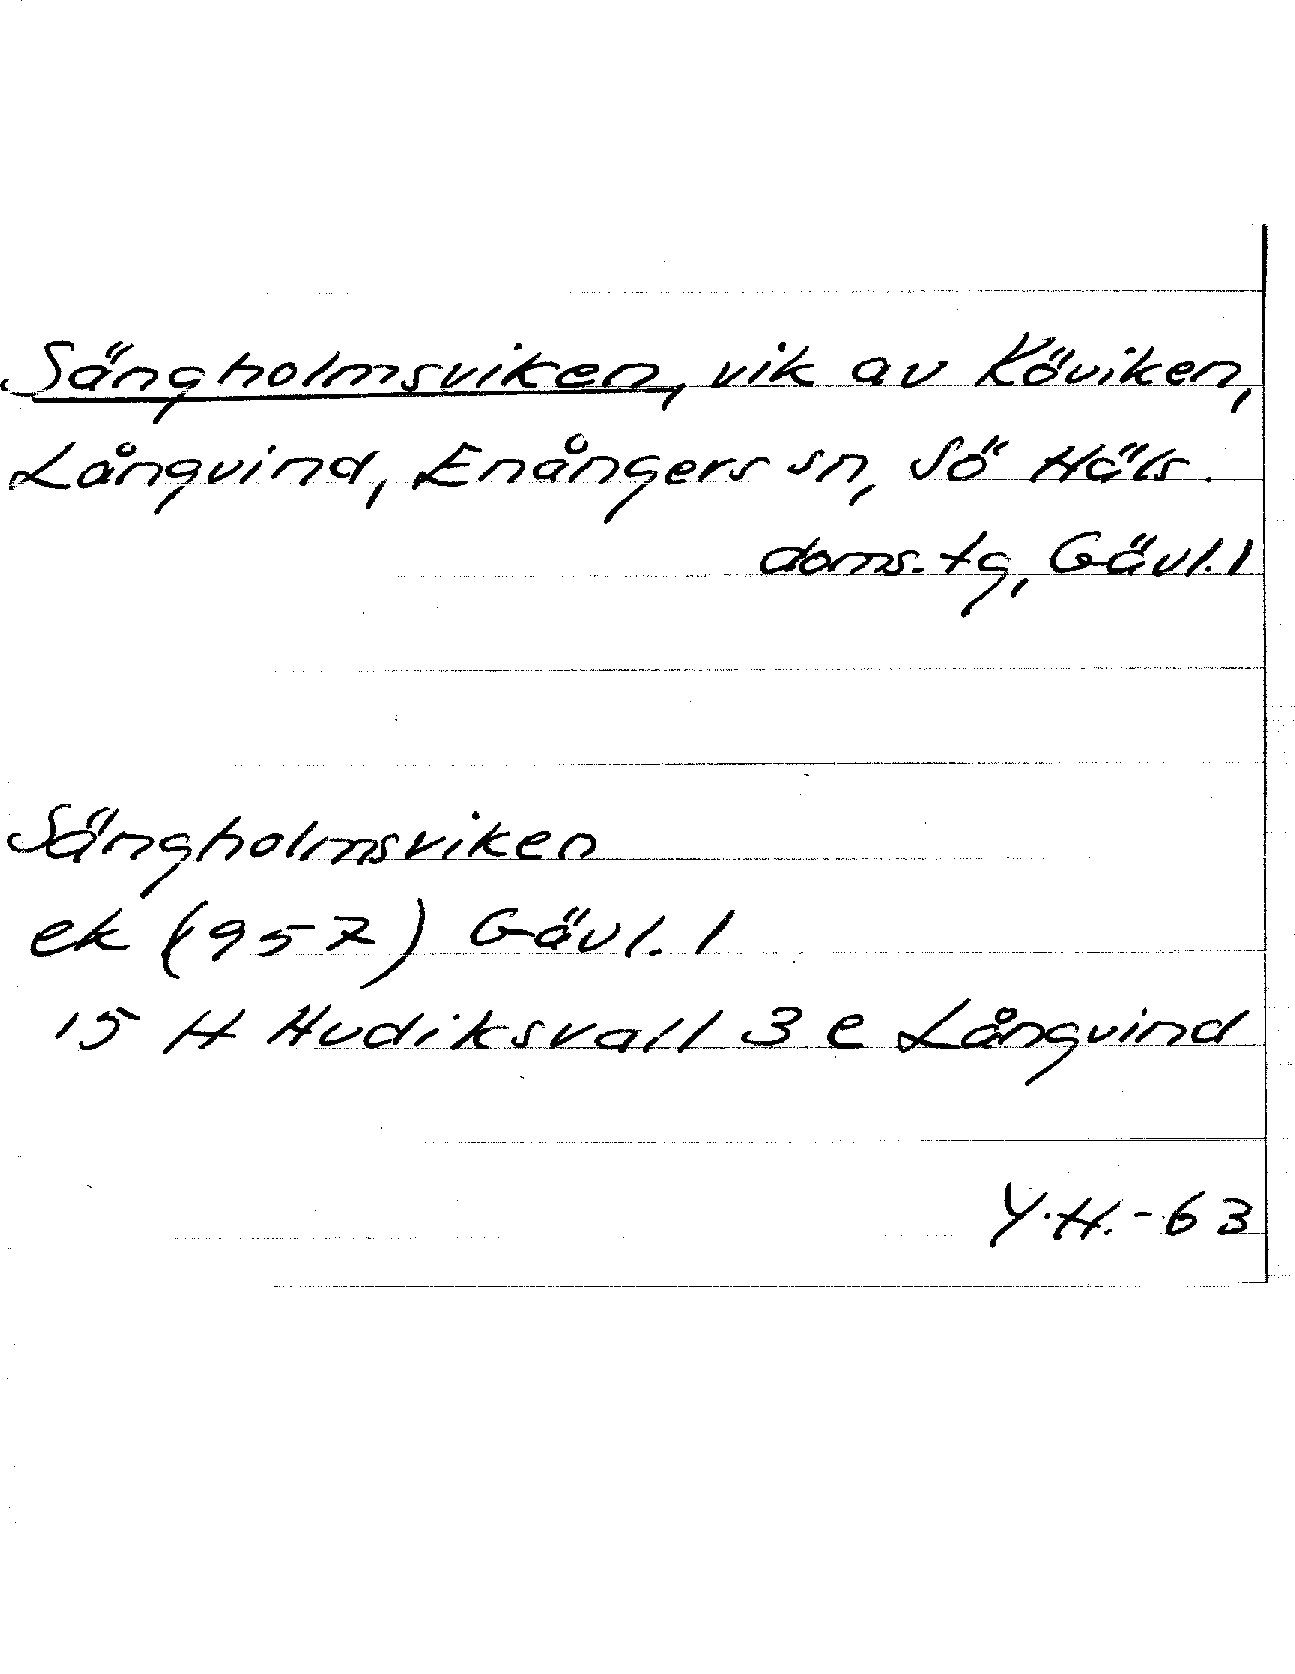 Sängholmsviken, vik av Köviken,
Långvind, Enångers sn, Sö Häls.
doms. tg, Gävl. l
Sängholmsviken
ek (957) Gävl. l
15 H Hudiksvall 3 e Långvind
Y.H.-63